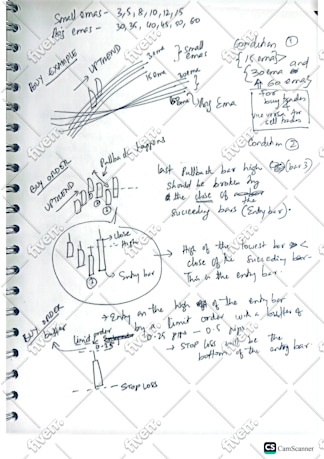 Small emas - 3, 5, 8, 10, 12, 15
Big emas - 30, 35, 40, 45, 50, 60
BUY EXAMPLE
UPTREND
3 ema
15 ema
30 ema
60 ema
Small emas
Big Ema
Condition ①
15 ema
30 ema and
60 ema
for buy trades
vice versa for sell trades
Condition ②
BUY ORDER
UPTREND
Pullback happens
last Pullback bar high (bar 3)
should be broken by
the close of the
succeeding bars (Entry bar).
close
High
Entry bar
→ High of the lowest bar <
close of the succeeding bar.
This is the entry bar.
BUY ORDER
buffer
→ Entry on the high of the entry bar
by a limit order with a buffer of
0.25 pips - 0.5 pips
limit order
0.25
→ Stop loss will be the
bottom of the entry bar.
STOP LOSS
fiverr.
CS CamScanner